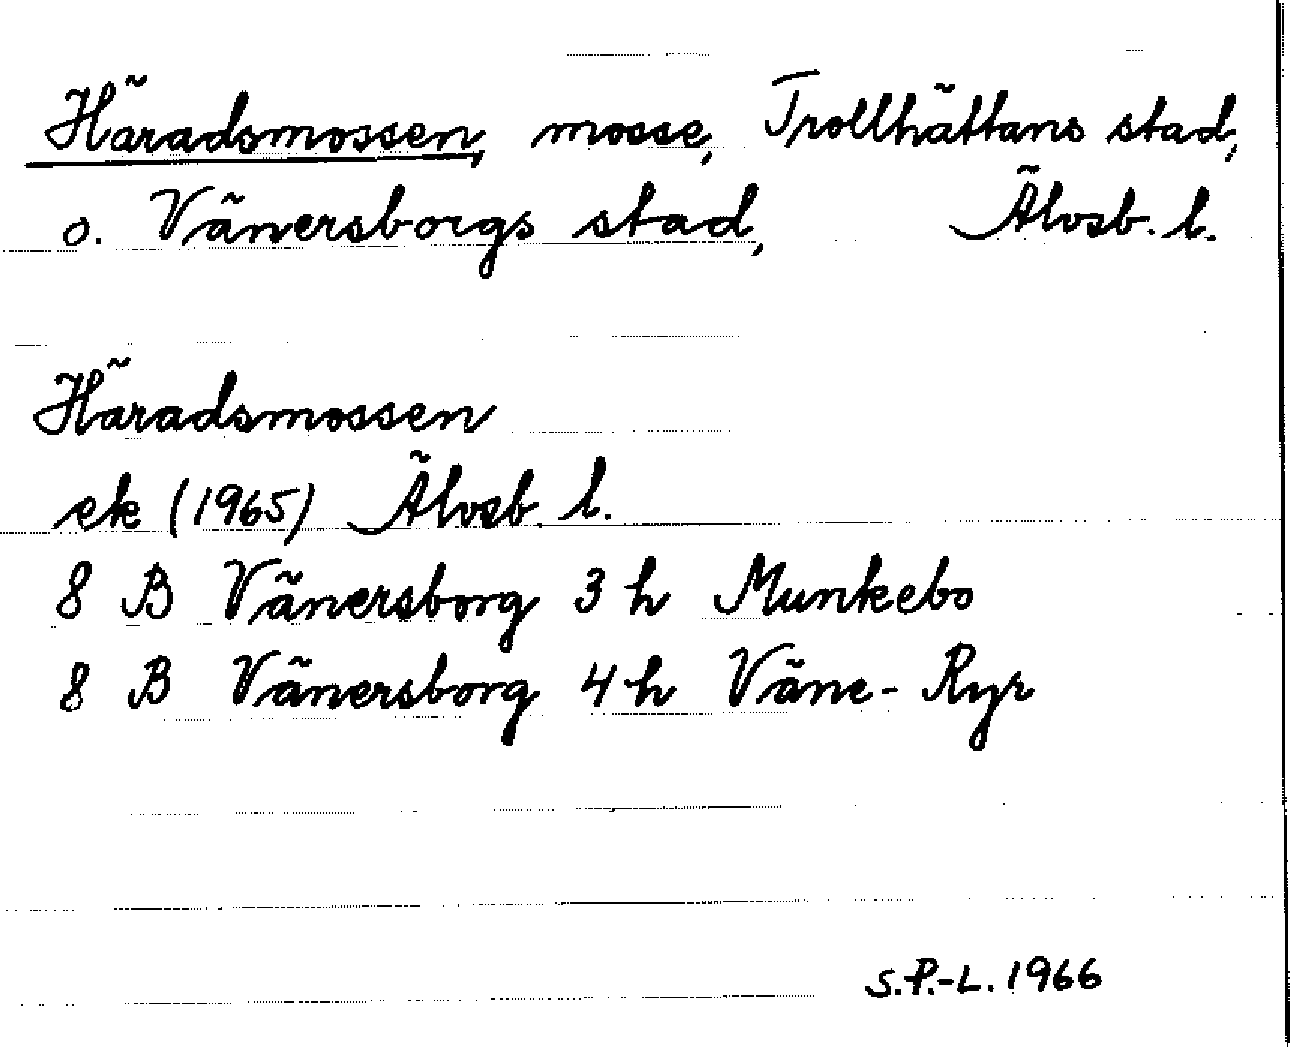 Häradsmossen, mosse, Trollhättans stad,
o. Vänersborgs stad, Älvsb. l.
Häradsmossen
ek (1965) Älvsb. l.
8 B Vänersborg 3 h Munkebo
8 B Vänersborg 4 h Väne-Ryr
S.P.-L. 1966